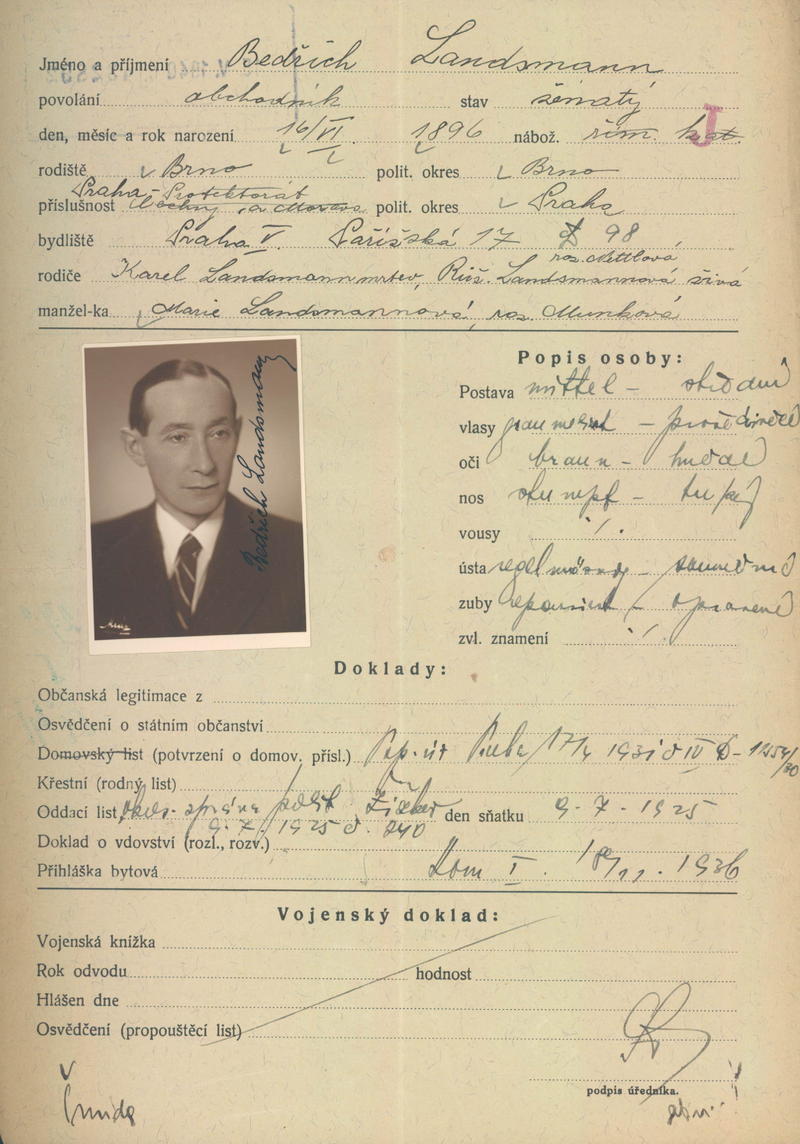 Jméno a příjmení Bedřich Landsmann
povolání obchodník stav ženatý
den, měsíc a rok narození 16/VI 1896 nábož. řím. kat. J
rodiště Brno polit. okres Brno
Praha - Protektorát
příslušnost Čechy a Morava polit. okres Praha
bydliště Praha V. Pařížská 17 98
roz.
rodiče Karel Landsmann mrtev, Růž. Landsmannová živá
manžel-ka Marie Landsmannová, roz. Munková
Bedřich Landsmann
Popis osoby:
Postava mittel - střední
vlasy - prošedivělé
oči braun - hnědé
nos stumpf - tupý
vousy ·/.
ústa regelmässig - souměrná
zuby repariert - opravené
zvl. znamení ·/.
Doklady:
Občanská legitimace z
Osvědčení o státním občanství
Domovský list (potvrzení o domov. přísl.) 17/4 1931
Křestní (rodný list)
Oddací list, okr. správa polit. den sňatku 9. 7. 1925
9. 7. 1925 č. 240
Doklad o vdovství (rozl., rozv.)
Přihláška bytová Dom I. 18/11. 1936
Vojenský doklad:
Vojenská knížka
Rok odvodu hodnost
Hlášen dne
Osvědčení (propouštěcí list)
podpis úředníka.